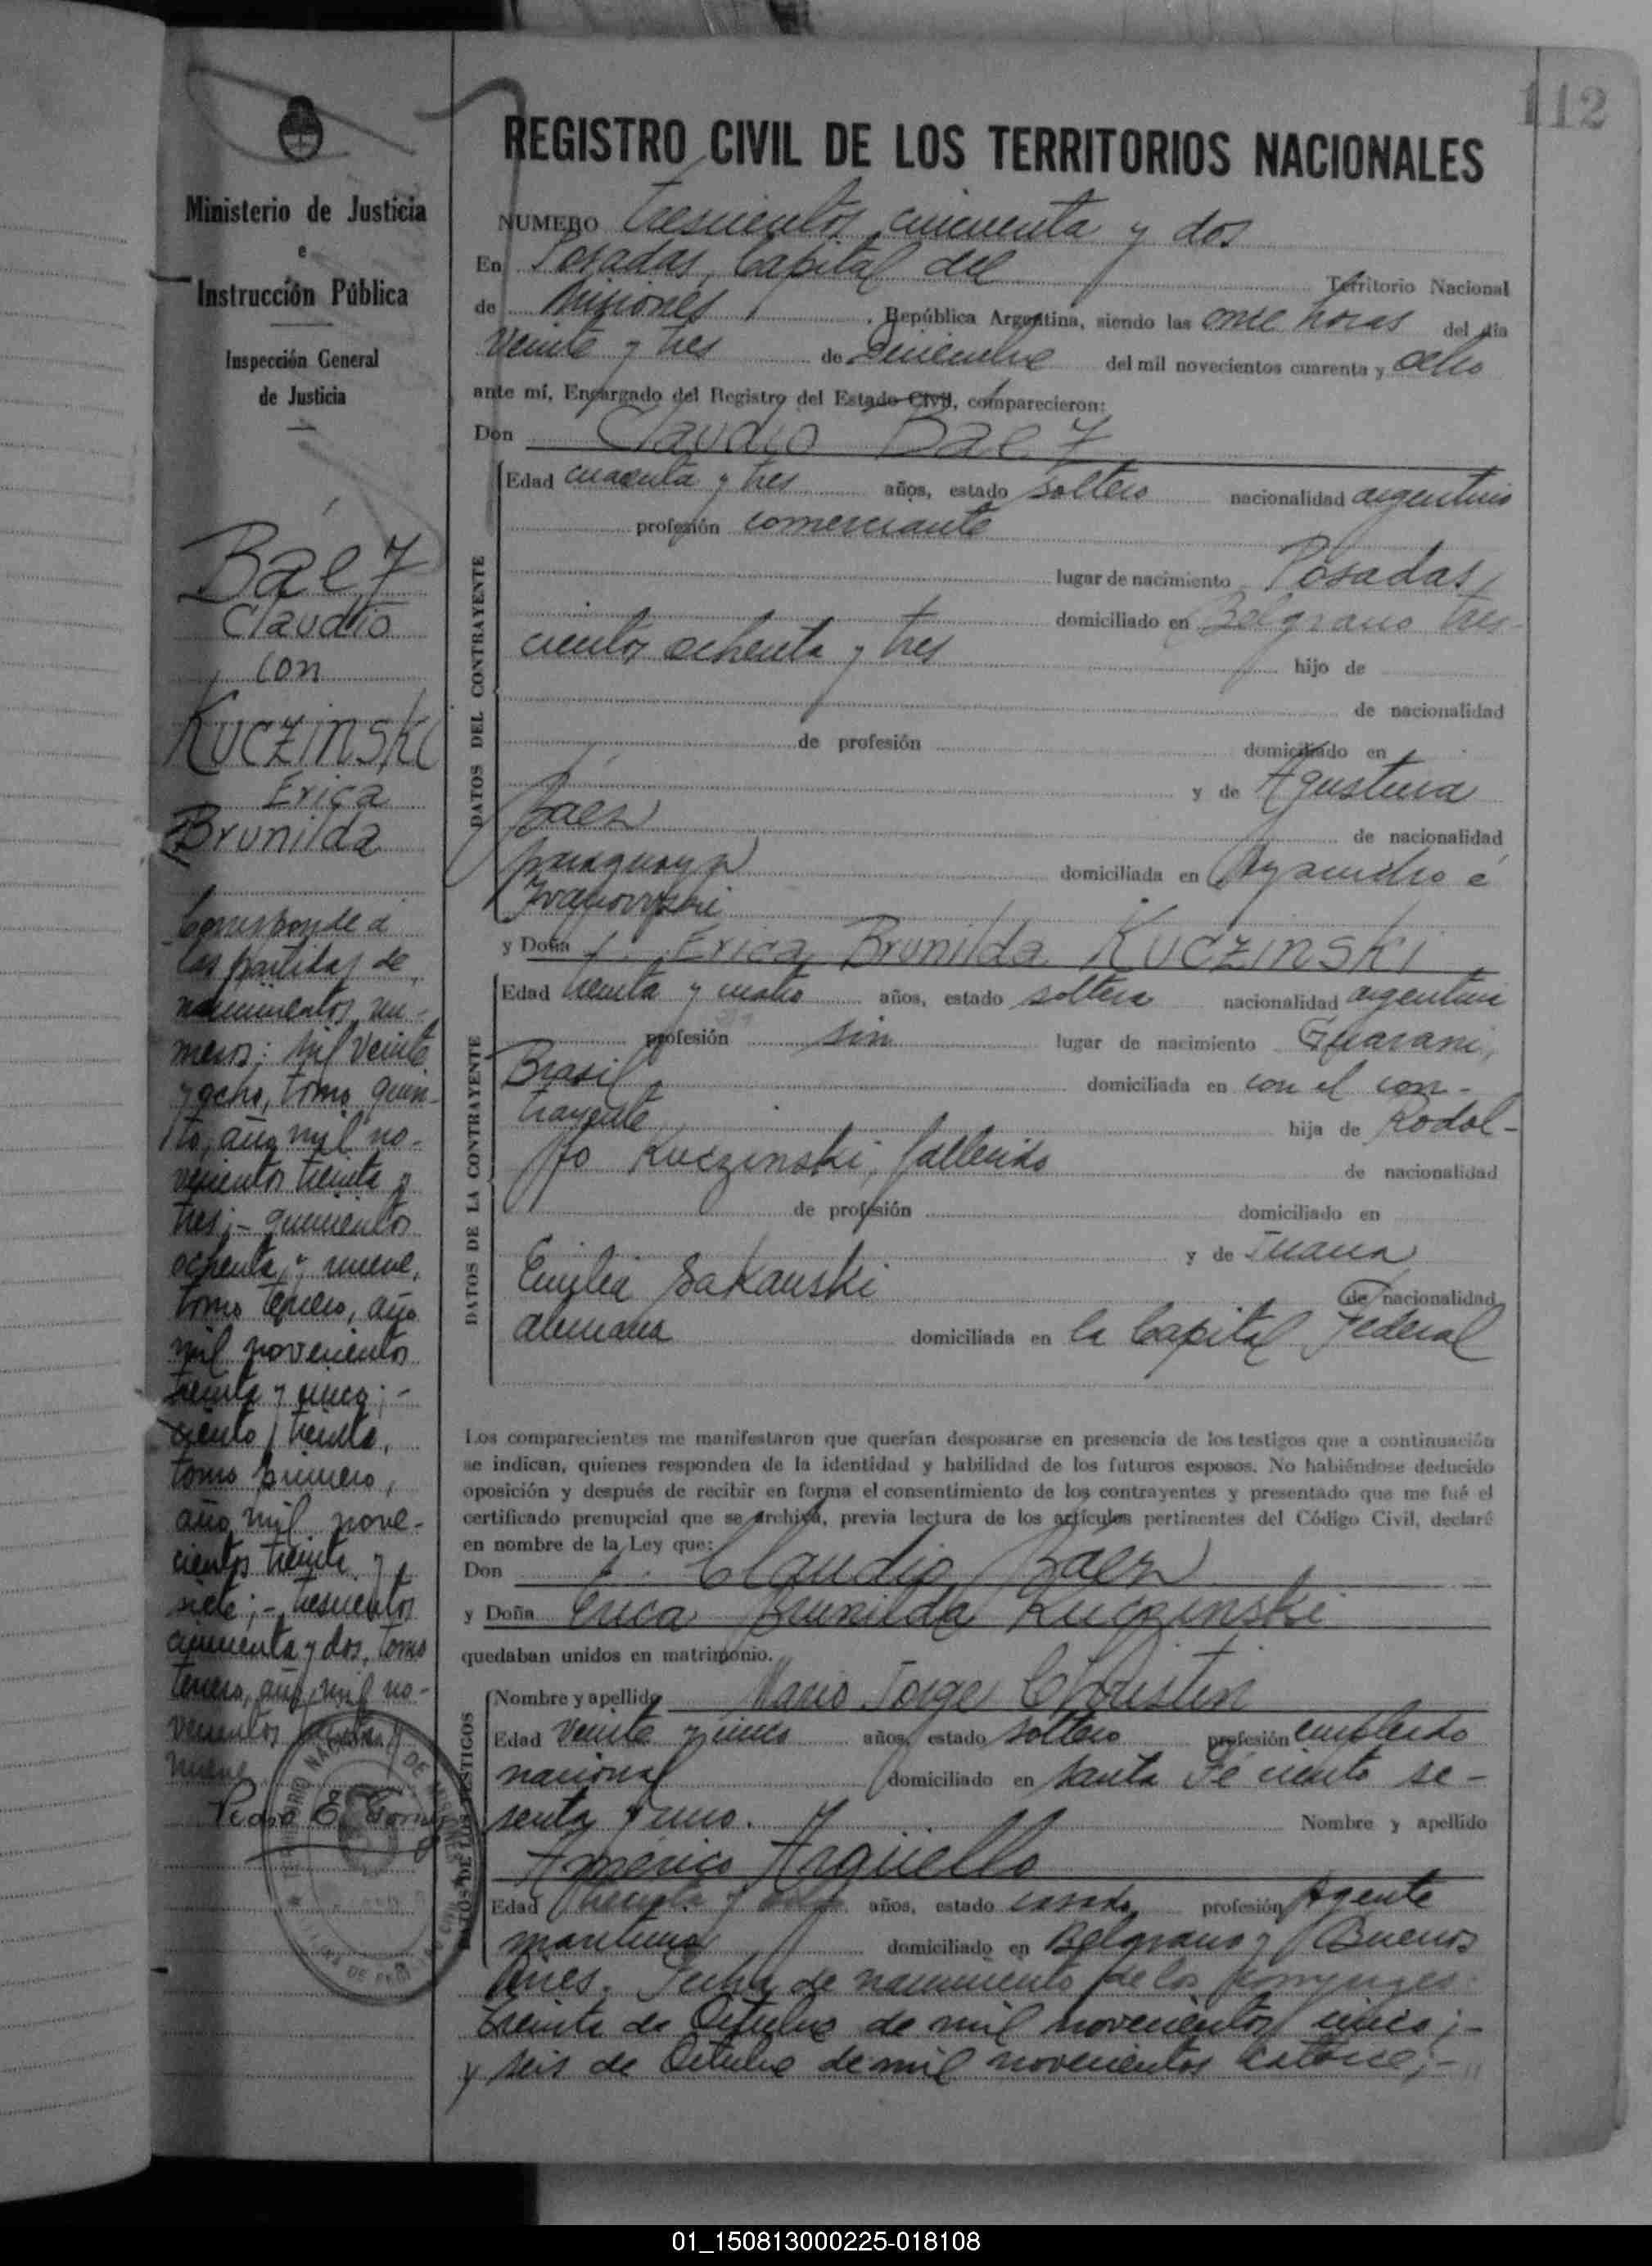 112
Ministerio de Justicia
e
Instrucción Pública
Inspección General
de Justicia
Baez
Claudio
con
Kuczinski
Erica
Brunilda
Corresponde a
las partidas de
nacimientos nú-
meros: mil veinte
y ocho, tomo quin-
to, año mil no-
vecientos treinta y
tres; - quinientos
ochenta y nueve,
tomo tercero, año
mil novecientos
treinta y cinco; -
ciento treinta,
tomo primero,
año mil nove-
cientos treinta y
siete; - trescientos
cincuenta y dos, tomo
tercero, año mil no-
vecientos treinta y
nueve
Pedro E.
REGISTRO CIVIL DE LOS TERRITORIOS NACIONALES
NUMERO trescientos cincuenta y dos
En Posadas, Capital del Territorio Nacional
de Misiones, República Argentina, siendo las once horas del día
veinte y tres de Diciembre del mil novecientos cuarenta y ocho
ante mí, Encargado del Registro del Estado Civil, comparecieron:
Don Claudio Baez
DATOS DEL CONTRAYENTE
Edad cuarenta y tres años, estado soltero nacionalidad argentino
profesión comerciante
lugar de nacimiento Posadas,
domiciliado en Belgrano tres-
cientos ochenta y tres hijo de
de nacionalidad
de profesión domiciliado en
y de Agustina
Baez de nacionalidad
paraguaya domiciliada en Ayacucho e
y Doña Erica Brunilda Kuczinski
DATOS DE LA CONTRAYENTE
Edad treinta y cuatro años, estado soltera nacionalidad argentina
profesión sin lugar de nacimiento Guarani,
Brasil domiciliada en con el con-
trayente hija de Rodol-
fo Kuczinski, fallecido de nacionalidad
de profesión domiciliado en
y de Juana
Emilia Sakauski de nacionalidad
alemana domiciliada en la Capital Federal
Los comparecientes me manifestaron que querían desposarse en presencia de los testigos que a continuación
se indican, quienes responden de la identidad y habilidad de los futuros esposos. No habiéndose deducido
oposición y después de recibir en forma el consentimiento de los contrayentes y presentado que me fué el
certificado prenupcial que se archiva, previa lectura de los artículos pertinentes del Código Civil, declaré
en nombre de la Ley que:
Don Claudio Baez
y Doña Erica Brunilda Kuczinski
quedaban unidos en matrimonio.
DATOS DE LOS TESTIGOS
Nombre y apellido Mario Jorge Christen
Edad veinte y cinco años, estado soltero profesión empleado
nacional domiciliado en Santa Fé ciento se-
senta y uno. Nombre y apellido
Américo Argüello
Edad treinta y años, estado casado profesión Agente
maritimo domiciliado en Belgrano y Buenos
Aires. Fecha de nacimiento de los conyuges:
treinta de Octubre de mil novecientos cinco; -
y seis de Octubre de mil novecientos catorce; -
01_150813000225-018108